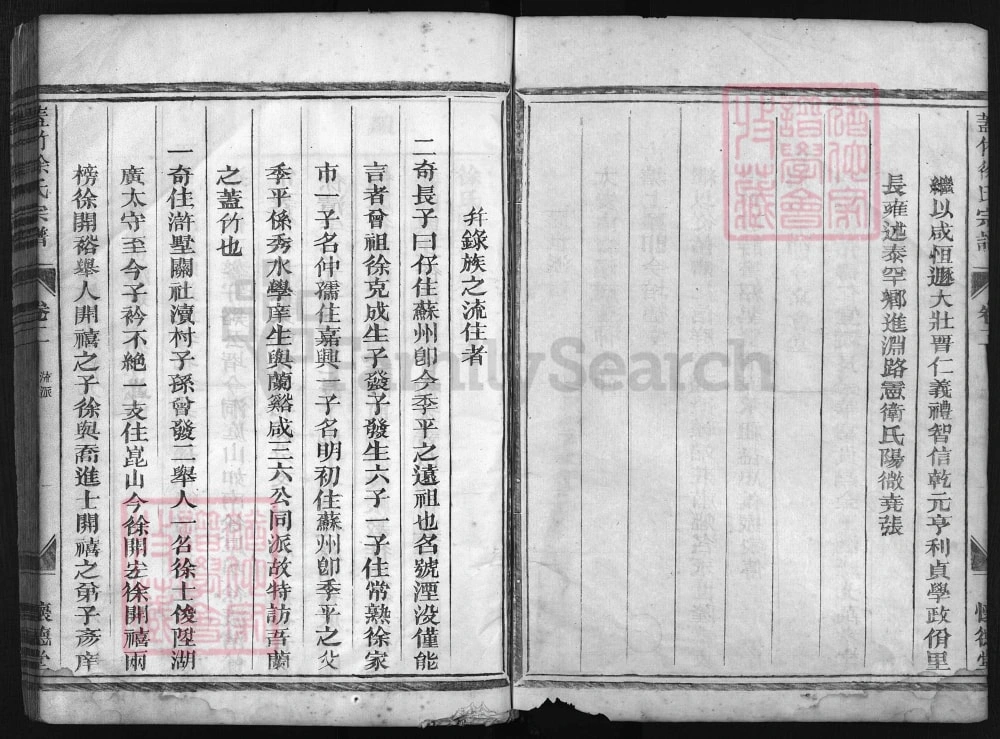 繼以咸恒遯大壯晋仁義禮智信乾元亨利貞學政佾里
長雍述泰罕鄉進淵路憲衛氏陽微堯張
蓋竹徐氏宗譜 卷二 懷德堂
幷錄族之流住者
二奇長子曰仔住蘇州卽今季平之遠祖也名號湮没僅能
言者曾祖徐克成生子發子發生六子一子住常熟徐家
市一子名仲孺住嘉興一子名明初住蘇州卽季平之父
季平係秀水學庠生與蘭谿咸三六公同派故特訪吾蘭
之蓋竹也
一奇住滸墅關社瀆村子孫曾發二舉人一名徐士俊陞湖
廣太守至今子衿不絶一支住崑山今徐開宏徐開禧兩
榜徐開裕舉人開禧之子徐與喬進士開禧之弟子彥庠
蓋竹徐氏宗譜 卷二 派 懷德堂
FamilySearch